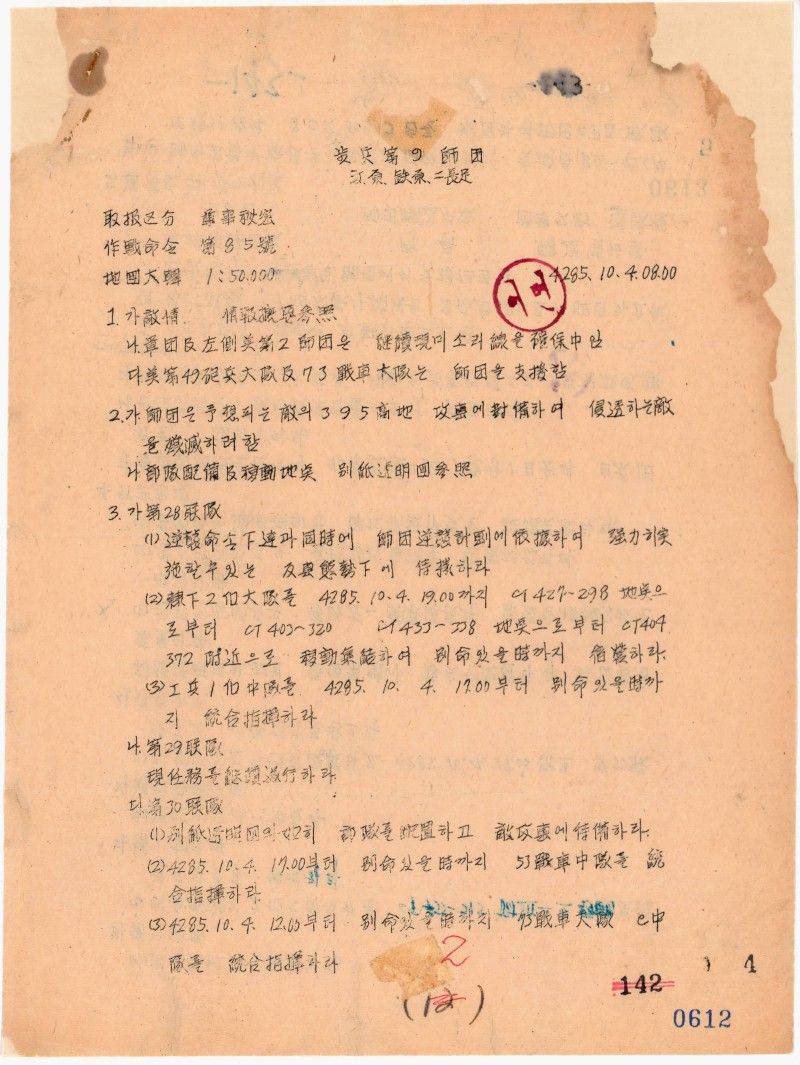 步兵第9師団
江原 鉄原 二長足
取扱区分 軍事秘密
作戰命令 第85號
地図大韓 1:50.000
4285. 10. 4. 08.00
1. 가敵情 情報 參照
나 軍団 및 左側 美第2師団은 繼續 現 線을 確保中임
다 美第49砲兵大隊 및 73戰車大隊는 師団을 支援함
2. 가 師団은 予想되는 敵의 395高地 攻擊에 對備하여 侵透하는 敵
을 殲滅하려 함
나 部隊配備 및 移動地点 別紙透明図參照
3. 가 第28联隊
(1) 逆襲命令下達과 同時에 師団逆襲計劃에 依據하여 强力히 実
施할 수 있는 態勢下에 待機하라
(2) 隷下 2個大隊를 4285. 10. 4. 19.00까지 CT427~298 地点으
로부터 CT403~320 CT433~338 地点으로부터 CT404
372 附近으로 移動集結하여 別命있을時까지 하라.
(3) 工兵1個中隊를 4285. 10. 4. 17.00부터 別命있을時까
지 統合指揮하라
나. 第29联隊
現任務를 繼續遂行하라
다. 第30联隊
(1) 別紙透明図와 如히 部隊를 配置하고 敵攻擊에 待備하라.
(2) 4285. 10. 4. 17.00부터 別命있을時까지 53戰車中隊를 統
合指揮하라
(3) 4285. 10. 4. 12.00부터 別命있을時까지 73戰車大隊 C中
隊를 統合指揮하라
2
142
4
0612